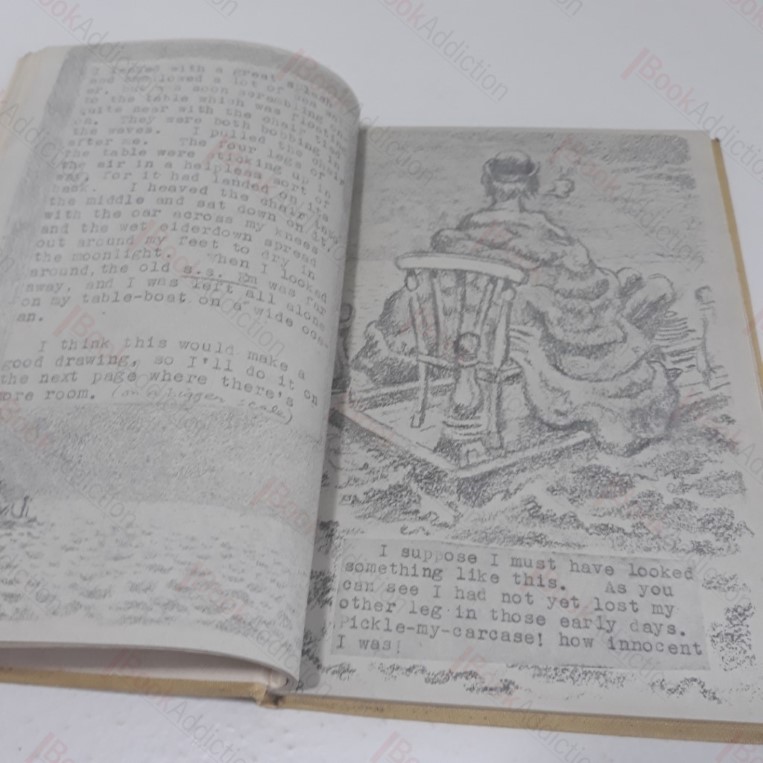 I landed with a great splash
and swallowed a lot of sea wat-
er, but was soon scrambling on
to the table which was floating
quite near with the chair close
on. They were both bobbing in
the waves. I pulled the chair
after me. The four legs of
the table were sticking up in
the air in a helpless sort of
way, for it had landed on its
back. I heaved the chair into
the middle and sat down on it,
with the oar across my knees,
and the wet eiderdown spread
out around my feet to dry in
the moonlight. When I looked
around, the old s.s. Em was far
away, and I was left all alone
on my table-boat on a wide oce-
an.
I think this would make a
good drawing, so I'll do it on
the next page where there's
ore room. (on a bigger scale)
I suppose I must have looked
something like this. As you
can see I had not yet lost my
other leg in those early days.
Pickle-my-carcase! how innocent
I was!
BookAddiction